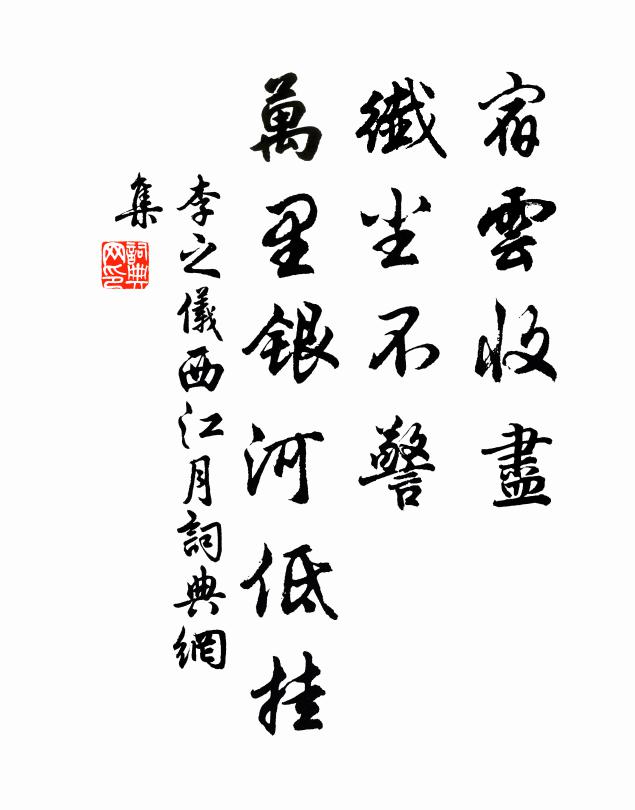 宿雲收盡
纖尘不警
萬里銀河低挂
李之儀西江月詞典網
集
詞典网印